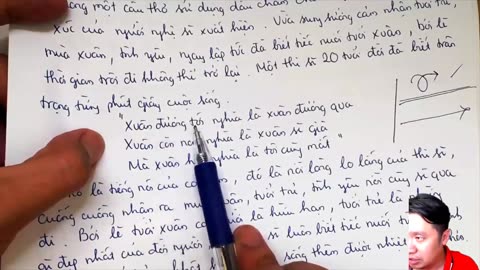 một câu thơ sử dụng dấu chấm
xúc của người nghệ sĩ xuất hiện. Vừa sung sướng cảm nhận tuổi trẻ,
mùa xuân, tình yêu, ngay lập tức đã biết tiếc nuối tuổi xuân, bởi lẽ
thời gian trôi đi không thể trở lại. Một thi sĩ 20 tuổi đời đã biết trân
trọng từng phút giây cuộc sống.
"Xuân đương tới nghĩa là xuân đương qua
Xuân còn non nghĩa là xuân sẽ già
Mà xuân nghĩa là tôi cũng mất"
là tiếng nói của đó là nỗi lòng lo lắng của thi sĩ,
cuống cuồng nhận ra mùa xuân, tuổi trẻ, tình yêu rồi cũng qua
đi. Bởi lẽ tuổi xuân là hữu hạn, tuổi trẻ là
gì đẹp nhất của đời người sĩ luôn biết tiếc nuối
sống thêm được nhiều